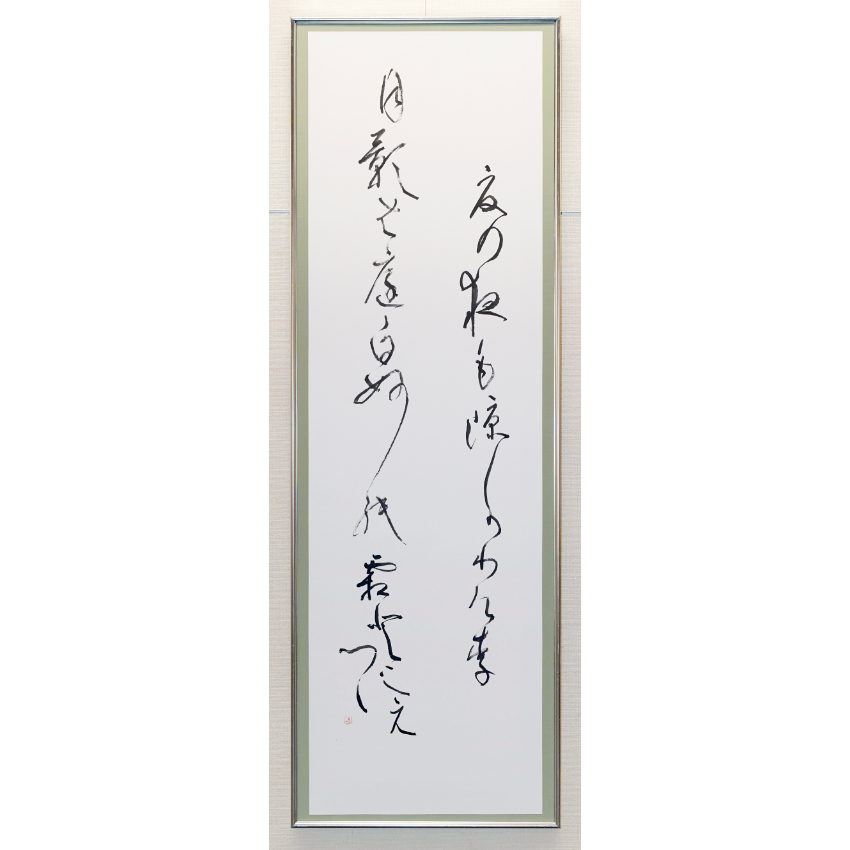 夏の夜も涼しかりけり
月影は庭白妙の霜とみえつゝ